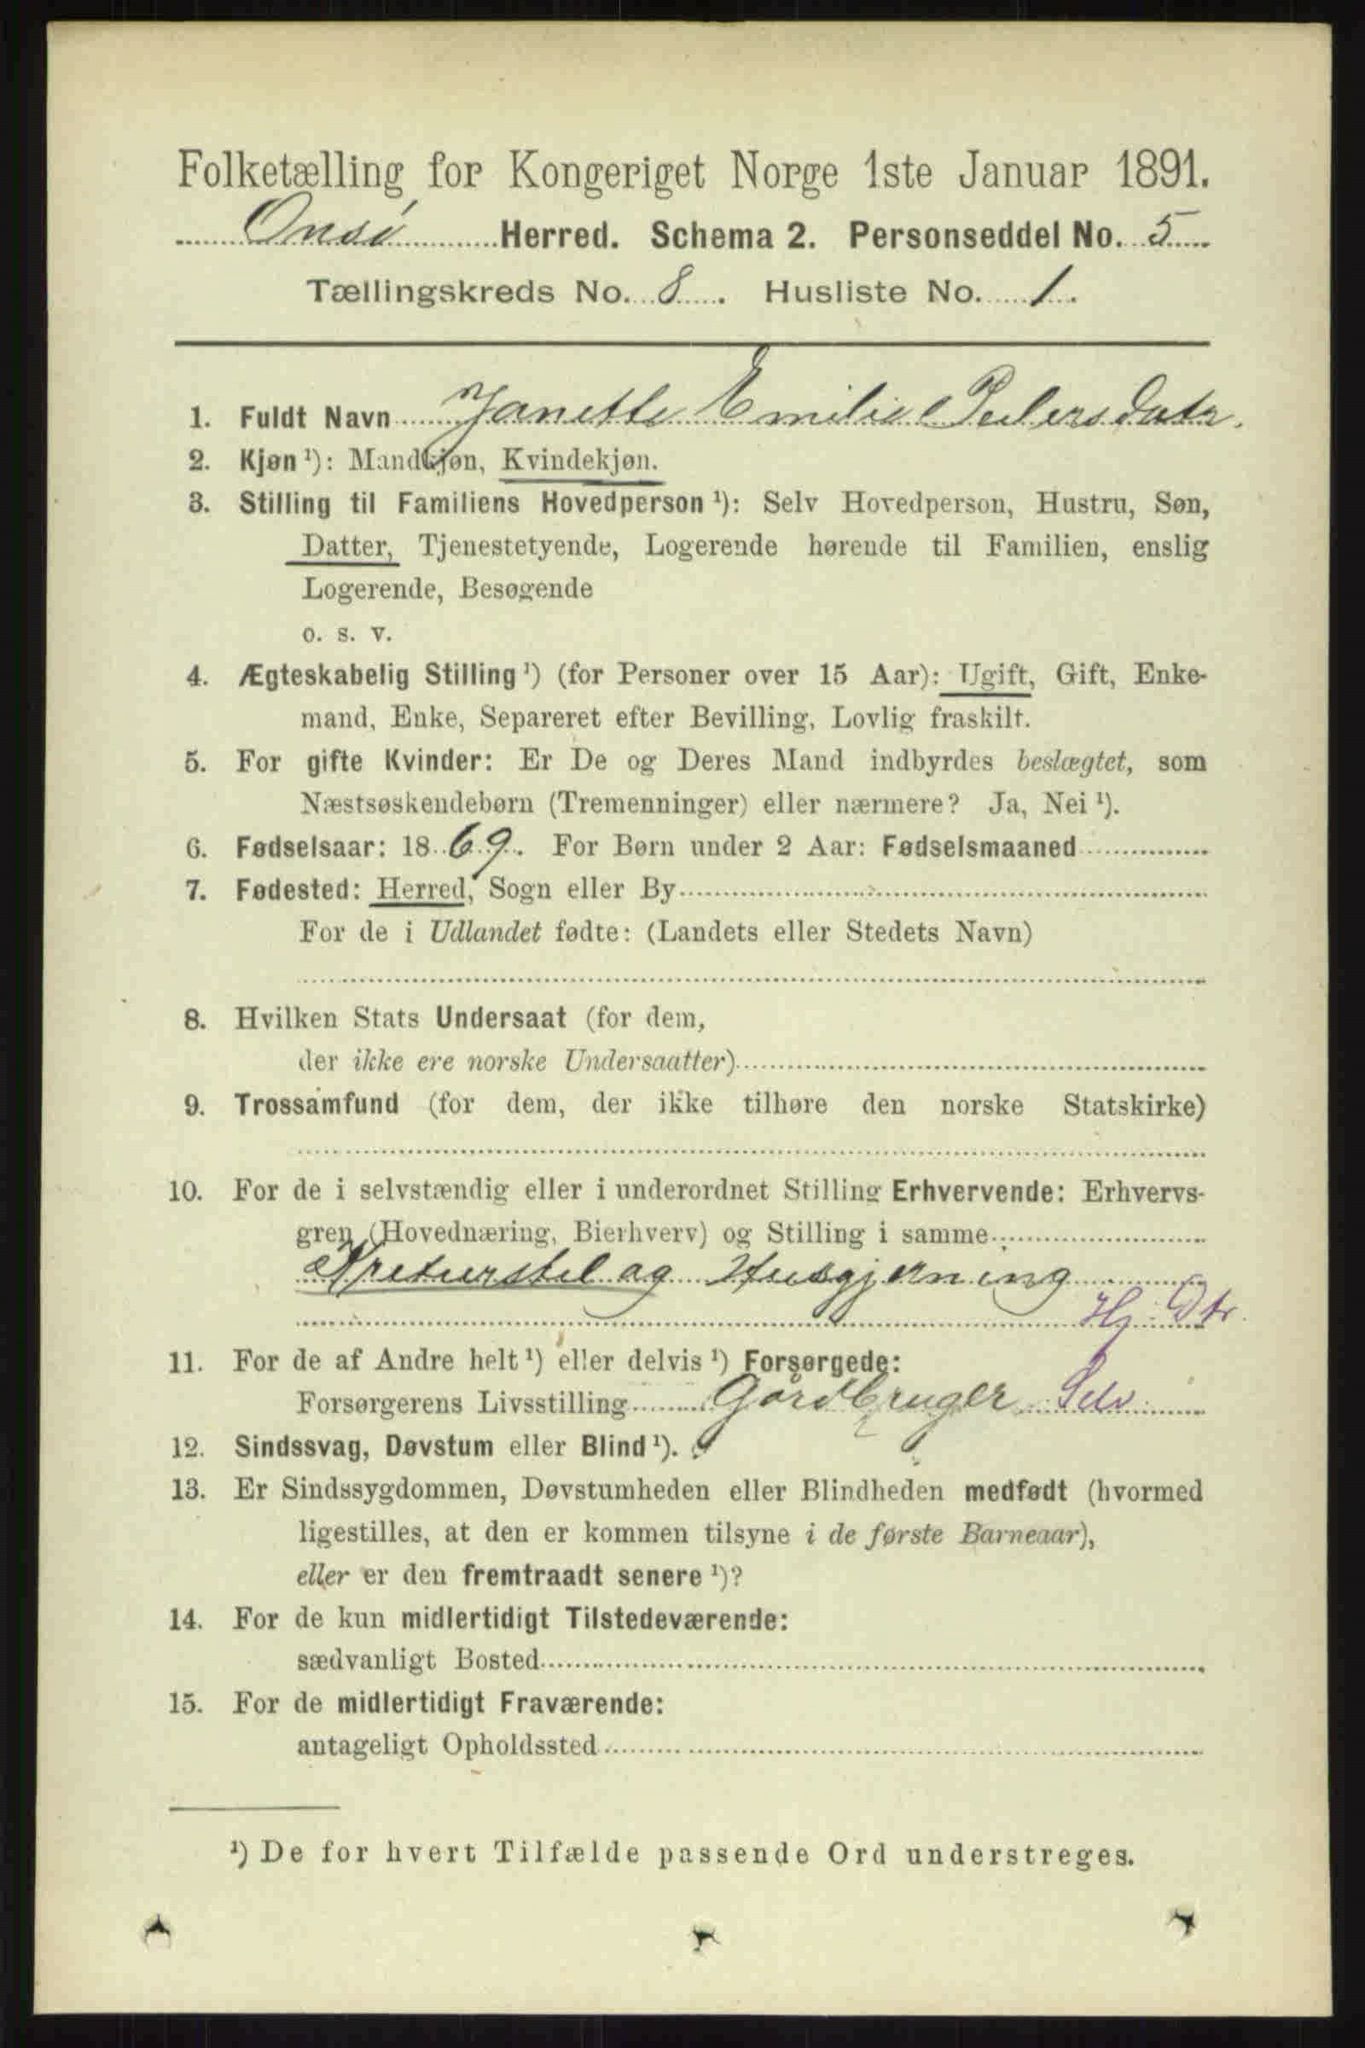 Folketælling for Kongeriget Norge 1ste Januar 1891.
Onsø Herred. Schema 2. Personseddel No. 5
Tællingskreds No. 8. Husliste No. 1.
1. Fuldt Navn Janette Emilie Pedersdatr.
2. Kjøn ¹): Mandkjøn, Kvindekjøn.
3. Stilling til Familiens Hovedperson ¹): Selv Hovedperson, Hustru, Søn,
Datter, Tjenestetyende, Logerende hørende til Familien, enslig
Logerende, Besøgende
o. s. v.
4. Ægteskabelig Stilling ¹) (for Personer over 15 Aar): Ugift, Gift, Enke-
mand, Enke, Separeret efter Bevilling, Lovlig fraskilt.
5. For gifte Kvinder: Er De og Deres Mand indbyrdes beslægtet, som
Næstsøskendebørn (Tremenninger) eller nærmere? Ja, Nei ¹).
6. Fødselsaar: 1869. For Børn under 2 Aar: Fødselsmaaned
7. Fødested: Herred, Sogn eller By
For de i Udlandet fødte: (Landets eller Stedets Navn)
8. Hvilken Stats Undersaat (for dem,
der ikke ere norske Undersaatter)
9. Trossamfund (for dem, der ikke tilhøre den norske Statskirke)
10. For de i selvstændig eller i underordnet Stilling Erhvervende: Erhvervs-
gren (Hovednæring, Bierhverv) og Stilling i samme
Kreturstel og Husgjerning
Hj. Dtr.
11. For de af Andre helt ¹) eller delvis ¹) Forsørgede:
Forsørgerens Livsstilling Gårdbruger Selv
12. Sindssvag, Døvstum eller Blind ¹).
13. Er Sindssygdommen, Døvstumheden eller Blindheden medfødt (hvormed
ligestilles, at den er kommen tilsyne i de første Barneaar),
eller er den fremtraadt senere ¹)?
14. For de kun midlertidigt Tilstedeværende:
sædvanligt Bosted
15. For de midlertidigt Fraværende:
antageligt Opholdssted
¹) De for hvert Tilfælde passende Ord understreges.